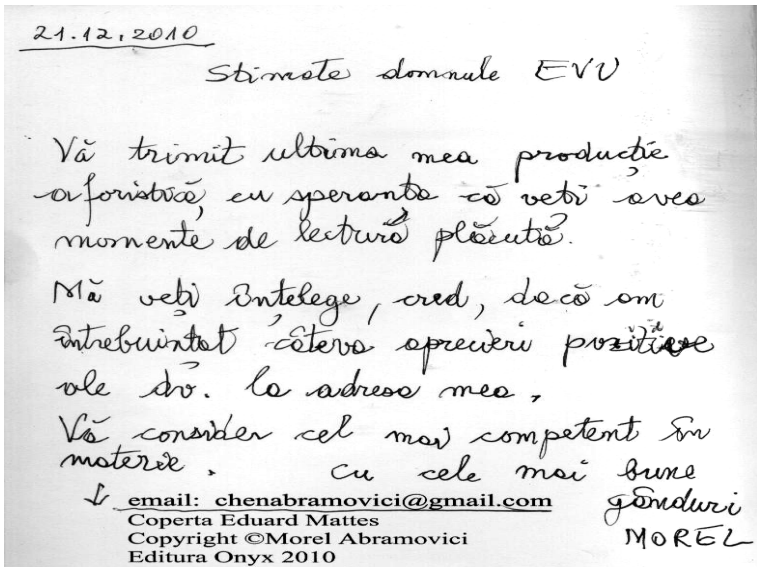 21.12.2010
Stimate domnule EVU
Vă trimit ultima mea producție
aforistică, cu speranța că veți avea
momente de lectură plăcută.
Mă veți înțelege, cred, dacă am
întrebuințat câteva aprecieri pozitive
ale dv. la adresa mea.
Vă consider cel mai competent în
materie. Cu cele mai bune
gânduri
MOREL
email: chenabramovici@gmail.com
Coperta Eduard Mattes
Copyright ©Morel Abramovici
Editura Onyx 2010